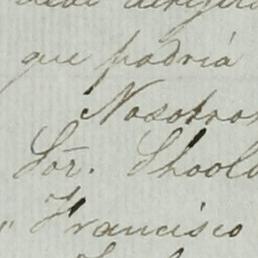 que podría
Nosotros
Sōr. Shool
" Francisco